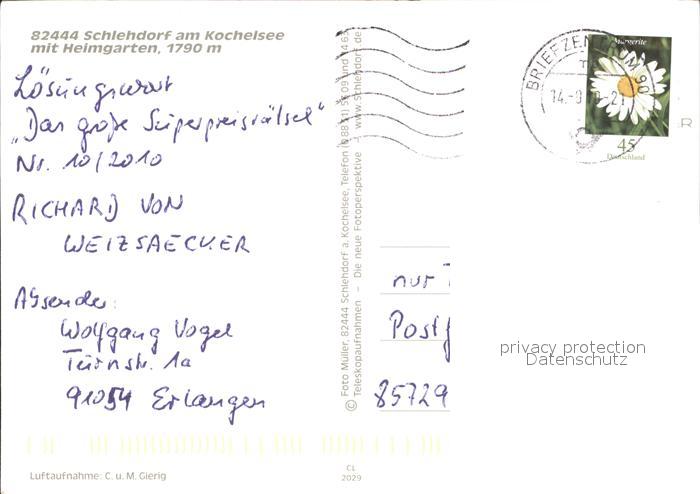 82444 Schlehdorf am Kochelsee
mit Heimgarten, 1790 m
Lösungswort
„Das große Superpreisrätsel"
Nr. 10/2010
RICHARD VON
WEIZSAECKER
Absender:
Wolfgang Vogel
Türnstr. 1a
91054 Erlangen
Luftaufnahme: C. u. M. Gierig
© Foto Müller, 82444 Schlehdorf a. Kochelsee, Telefon
Teleskopaufnahmen – Die neue Fotoperspektive – www.Schlehdorf.de
CL
2029
BRIEFZENTRUM 90
Margerite
45
Deutschland
R
nur
Postf
85729
privacy protection
Datenschutz